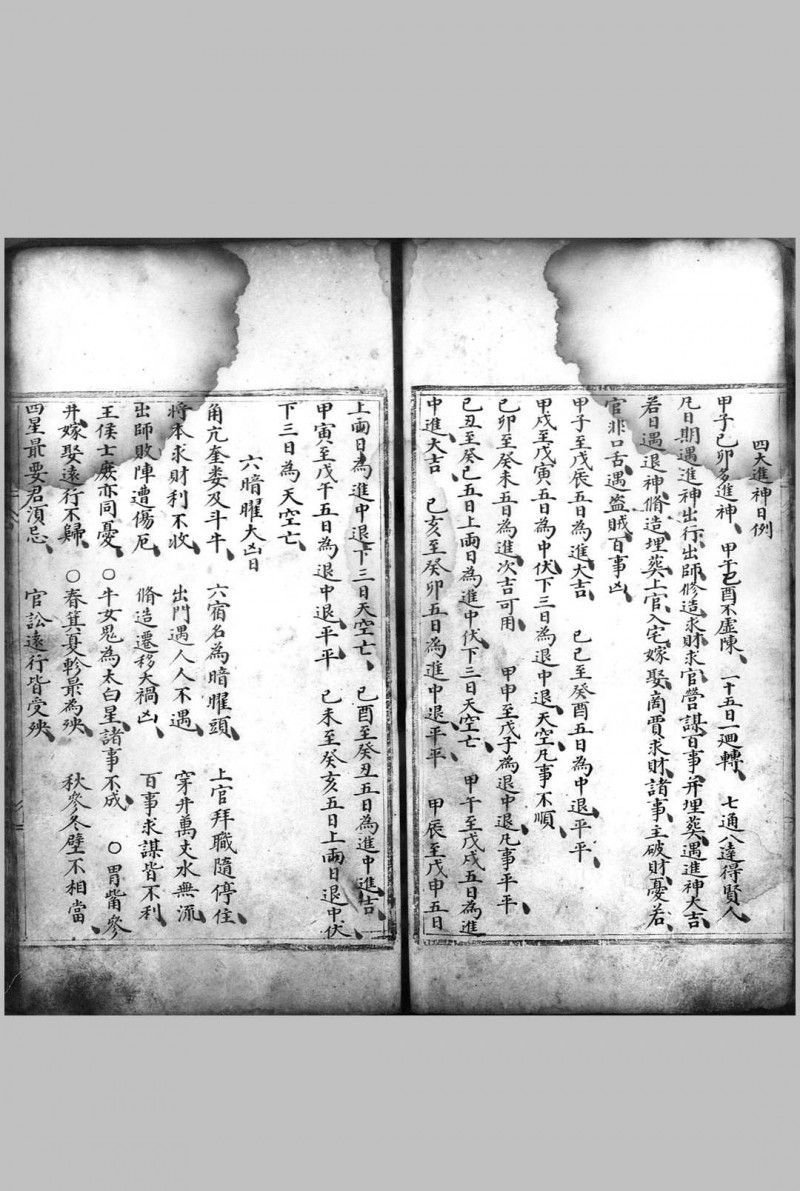 四大進神日例
甲子己卯多進神、甲午己酉不虛陳、一十五日一迴轉、七通八達得賢人、
凡日期遇進神出行出師修造求財求官營謀百事并埋葬遇進神大吉、
若日遇退神脩造埋葬上官入宅嫁娶商賈求財諸事主破財憂若、
官非口舌遇盜賊百事凶、
甲子至戊辰五日為進大吉　己巳至癸酉五日為中退平平、
甲戌至戊寅五日為中伏下三日為退中退天空凡事不順、
己卯至癸未五日為進次吉可用　甲申至戊子為退中退凡事平平、
己丑至癸巳五日上兩日為進中伏下三日天空亡、甲午至戊戌五日為進
中進大吉、己亥至癸卯五日為進中退平平、甲辰至戊申五日
上兩日為進中退下三日天空亡、己酉至癸丑五日為進中進吉、
甲寅至戊午五日為退中退平平　己未至癸亥五日上兩日退中伏
下三日為天空亡、
六暗曜大凶日
角亢奎婁及斗牛、六宿名為暗曜頭、上官拜職隨停住、
將本求財利不收、出門遇人人不遇、穿井萬丈水無流、
出師敗陣遭傷厄、脩造遷移大禍凶、百事求謀皆不利、
王侯士庶亦同憂、○牛女鬼為太白星諸事不成、○胃觜參
井嫁娶遠行不歸、○春箕夏軫最為殃、秋參冬壁不相當、
四星最要君須忌、官訟遠行皆受殃、